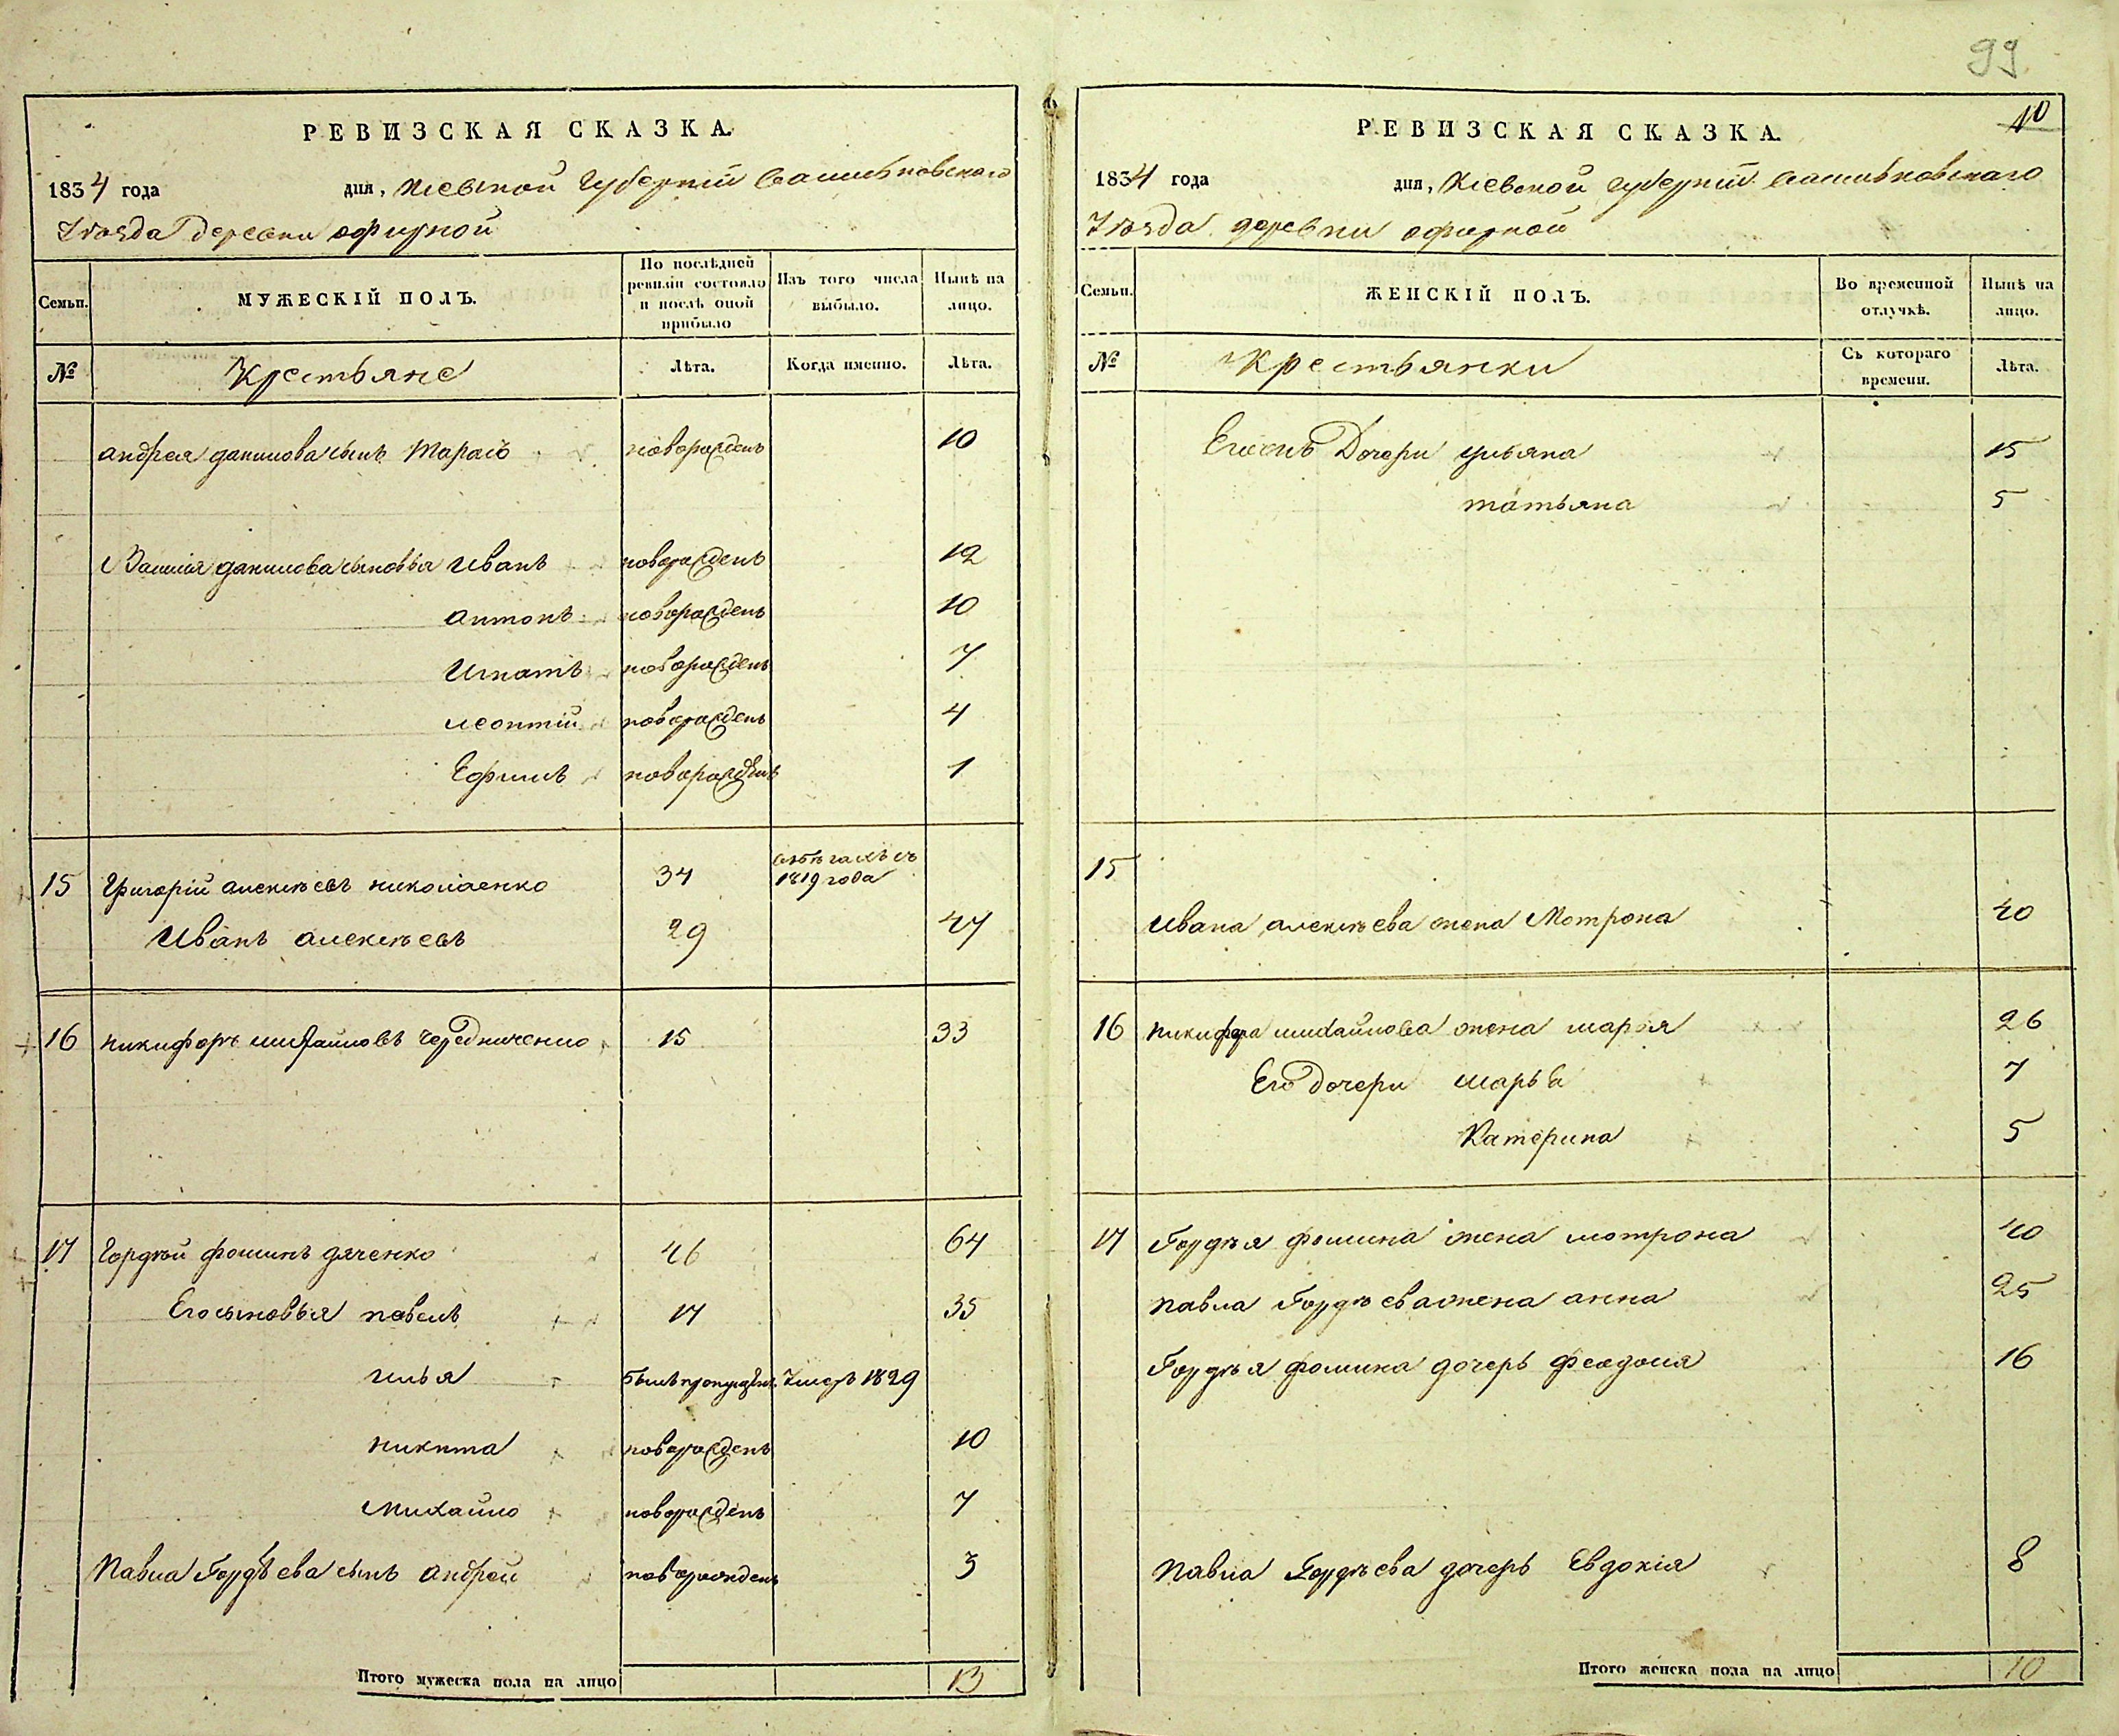 99
РЕВИЗСКАЯ СКАЗКА.
1834 года дня, Киевской Губерніи Васильковскаго
Уѣзда деревни офирной
Семьи. МУЖЕСКІЙ ПОЛЪ. По послѣдней ревизіи состояло и послѣ оной прибыло Изъ того числа выбыло. Нынѣ на лицо.
№ Крестьяне Лѣта. Когда именно. Лѣта.
андрея данилова сынъ Тарасъ новорожденъ 10
Василія данилова сыновья Иванъ новорожденъ 12
антонъ новорожденъ 10
Игнатъ новорожденъ 7
леонтій новорожденъ 4
Ефимъ новорожденъ 1
15 Григорій алексѣевъ николаенко 34 въ бѣгахъ съ 1819 года
Иванъ алексѣевъ 29 47
16 никифоръ михайловъ Чередниченко 15 33
17 Гордѣй фоминъ дяченко 46 64
Его сыновья павелъ 17 35
илья былъ пропущенъ Умеръ 1829
никита новорожденъ 10
Михайло новорожденъ 7
Павла Гордѣева сынъ андрей новорожденъ 3
Итого мужеска пола на лицо 13
10
РЕВИЗСКАЯ СКАЗКА.
1834 года дня, Киевской губерніи Васильковскаго
Уѣзда деревни офирной
Семьи. ЖЕНСКІЙ ПОЛЪ. Во временной отлучкѣ. Нынѣ на лицо.
№ Крестьянки Съ котораго времени. Лѣта.
Дочери ульяна 15
татьяна 5
15
Ивана алексѣева жена Мотрона 40
16 никифора михайлова жена марья 26
Его дочери марья 7
Катерина 5
17 Гордѣя фомина жена мотрона 40
павла Гордѣева жена анна 25
Гордѣя фомина дочерь феодосия 16
Павла Гордѣева дочерь Евдокія 8
Итого женска пола на лицо 10